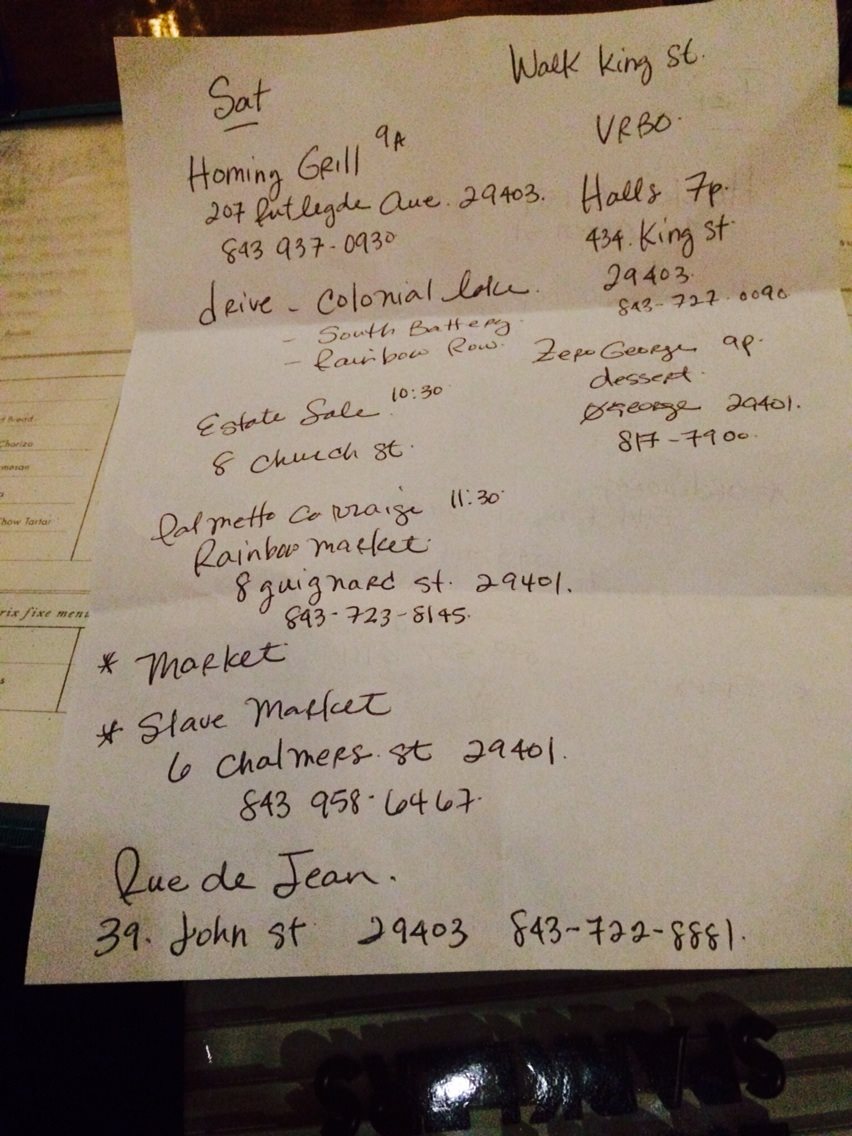 Sat
Homing Grill 9A
207 Rutlegde Ave. 29403.
843 937-0930
drive - Colonial lake.
- South Battery
- Rainbow Row.
Estate Sale 10:30
8 Church st.
Palmetto Carraige 11:30
Rainbow market
8 guignard st. 29401.
843-723-8145.
* Market
* Slave Market
6 Chalmers st 29401.
843 958-6467.
Rue de Jean.
39. John st 29403 843-722-8881.
Walk King St.
VRBO.
Halls 7p.
434. King st
29403.
843-727-0090
Zero George 9p.
dessert.
0 George 29401.
817-7900.
Bread
Chorizo
how Tartar
rix fixe menu